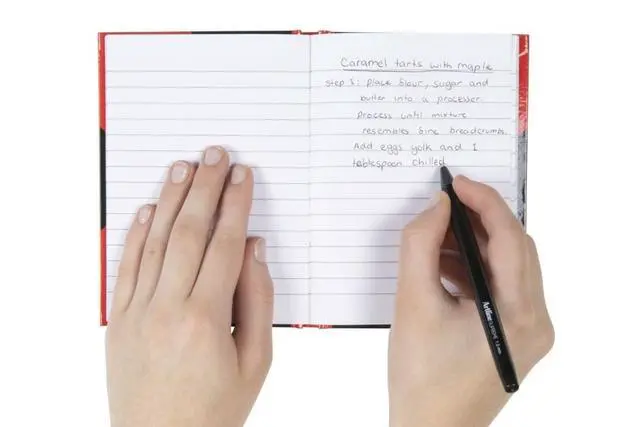 Caramel tarts with maple
step 1: place flour, sugar and
butter into a processer.
Process until mixture
resembles fine breadcrumbs.
Add eggs yolk and 1
tablespoon chilled
Artline SUPREME 1.0 mm